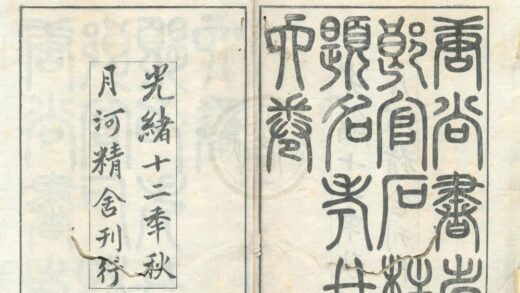 唐尚書省
郎官石柱
題名考廿
六卷
光緒十二季秋
月河精舍刊行